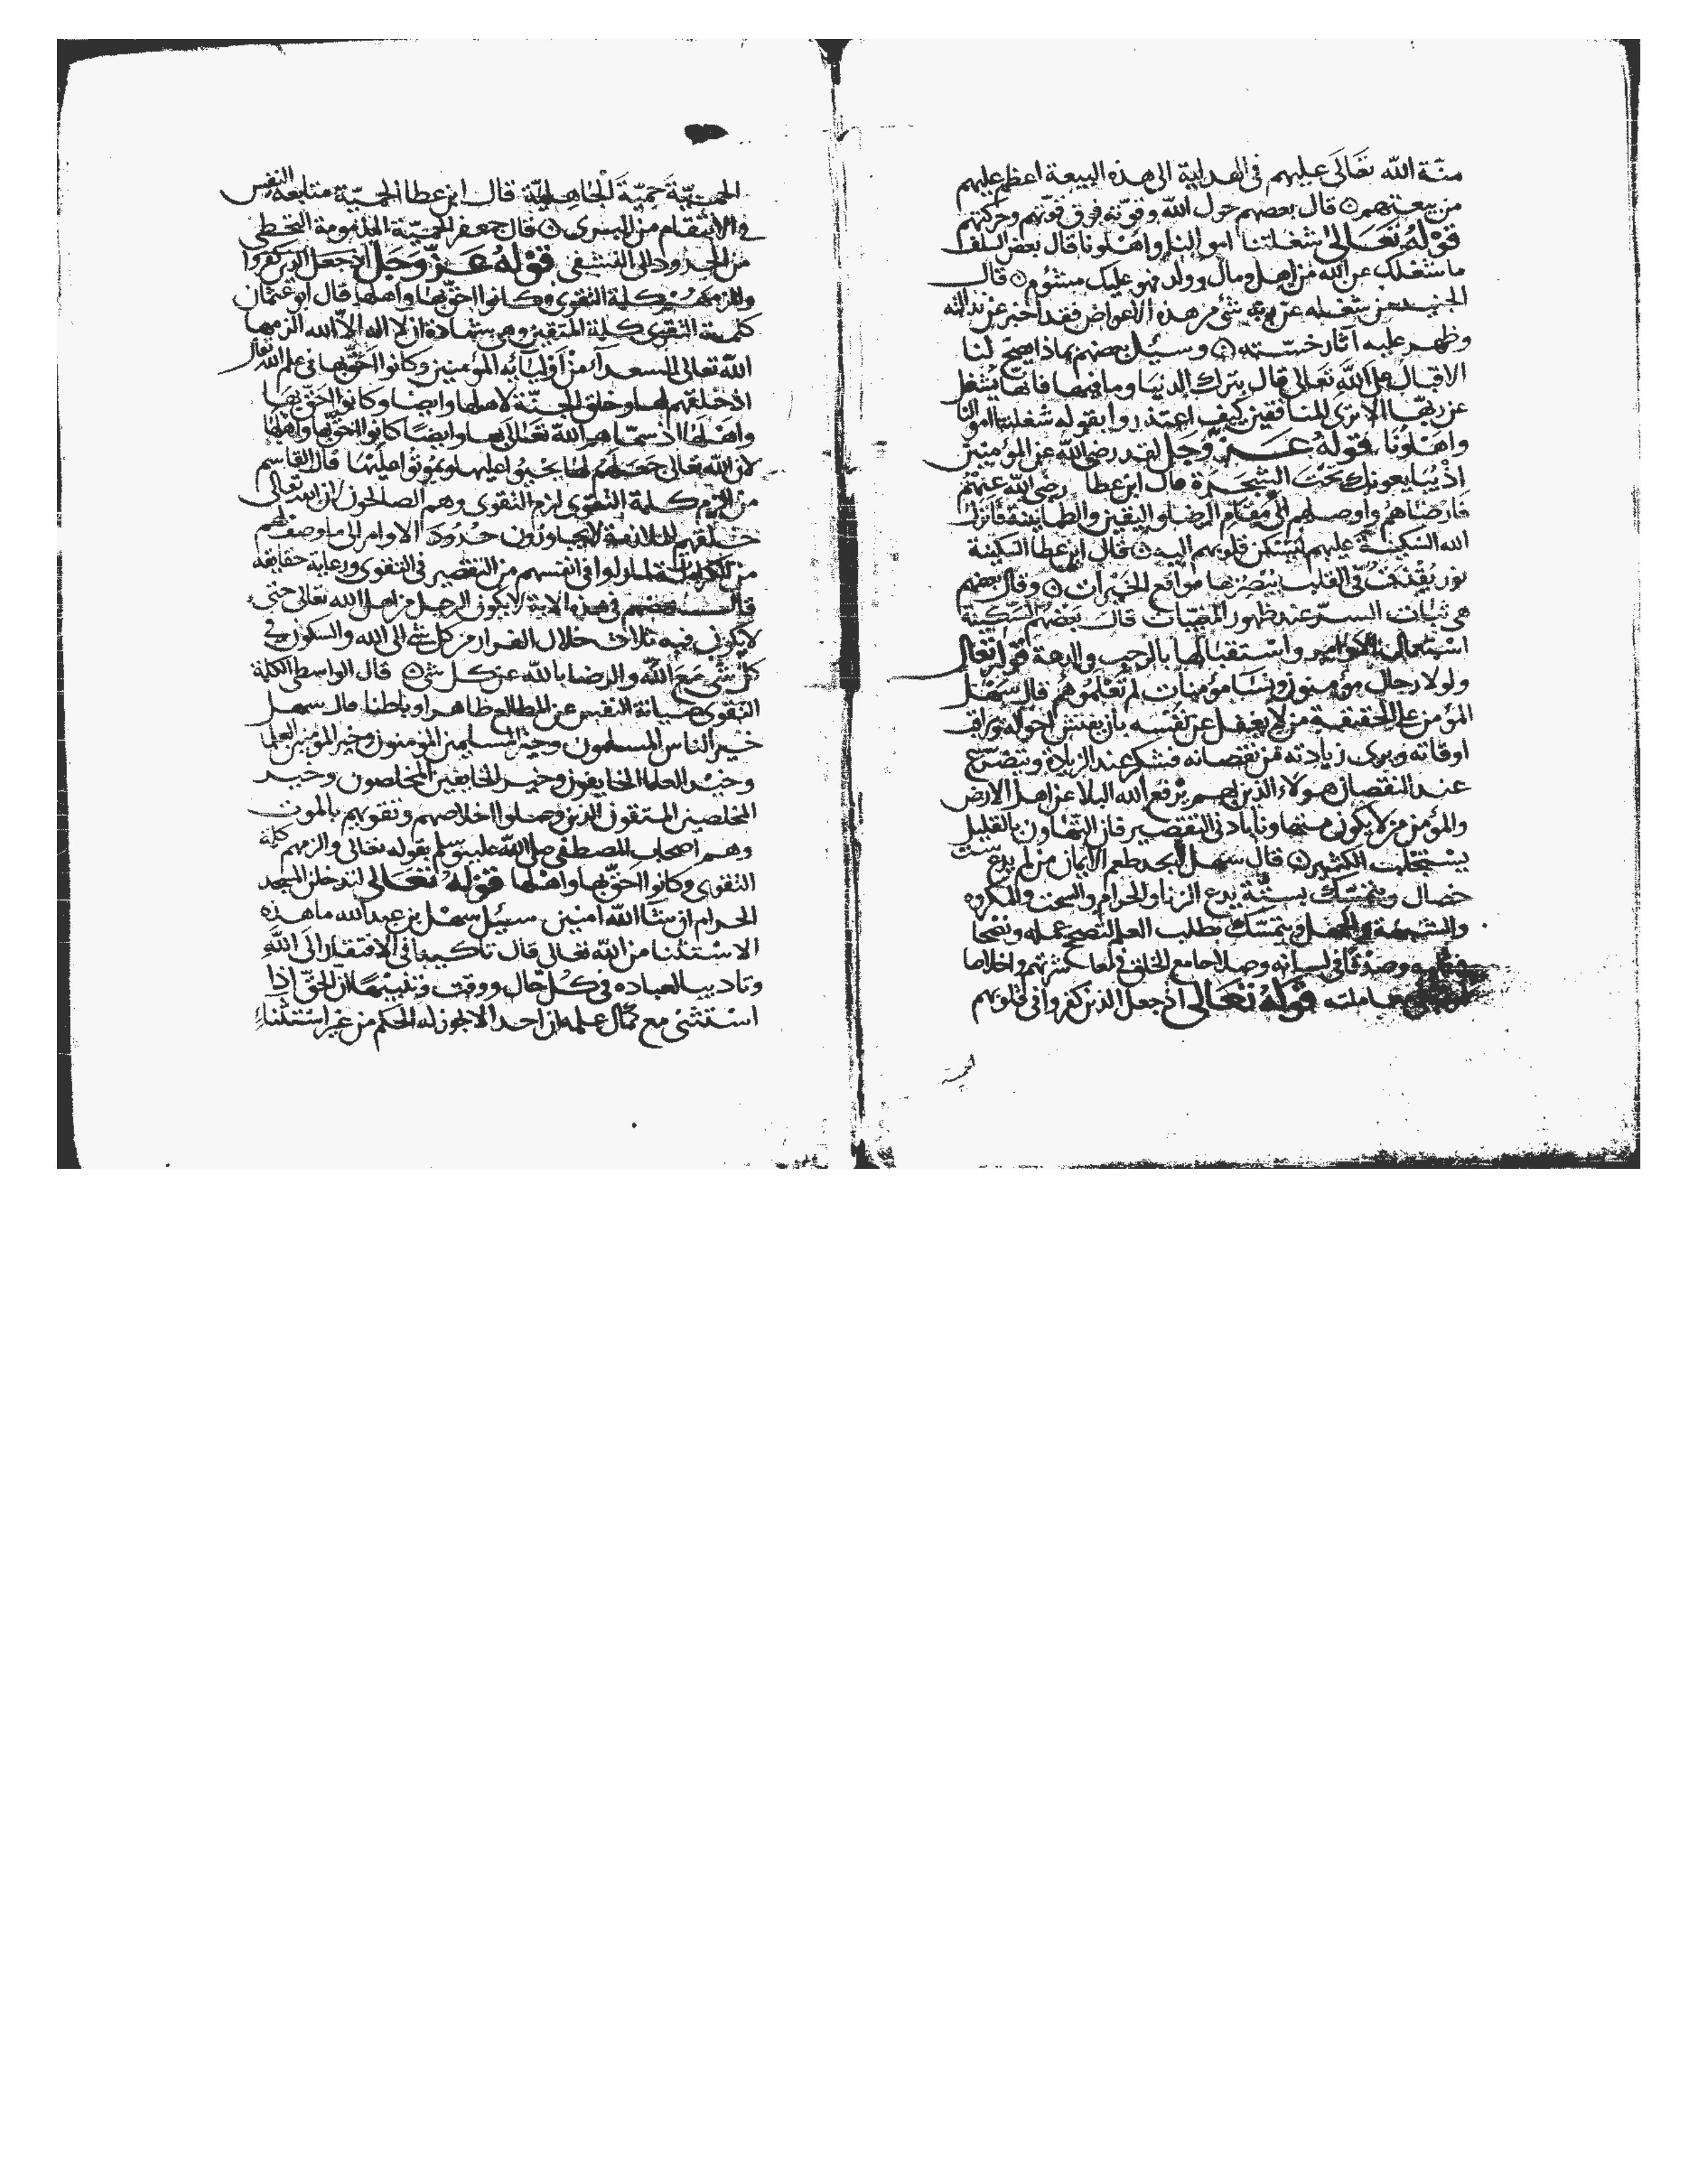 منة الله تعالى عليهم فى الهداية الى هذه البيعة اعظم عليهم
من بيعتهم قال بعضهم حول الله وقوته فوق قوتهم وحركتهم
قوله تعالى شغلتنا اموالنا واهلونا قال بعض السلف
ما شغلك عن الله من اهل ومال وولد فهو عليك مشئوم قال
الجنيد من شغله عن ربه شئ من هذه الاعراض فقد اخبر عن نذالته
وظهر عليه آثار خسته وسئل بعضهم بماذا يصح لنا
الاقبال على الله تعالى قال بترك الدنيا وما فيها فانها تشغل
عن ربها الا ترى للمنافقين كيف اعتذروا بقوله شغلتنا اموالنا
واهلونا قوله عز وجل لقد رضى الله عن المؤمنين
اذ يبايعونك تحت الشجرة قال ابن عطا رضى الله عنهم
فارضاهم واوصلهم الى مقام الرضا واليقين والطمانينة فانزل
الله السكينة عليهم لتسكن قلوبهم اليه قال ابن عطا السكينة
نور يقذف فى القلب يبصر بها مواقع الخيرات وقال بعضهم
هى ثبات السر عند ظهور المغيبات قال بعضهم السكينة
استقبالها بالرحب والدعة قوله تعالى
ولولا رجال مؤمنون ونسا مؤمنات لم تعلموهم قال سهل
المؤمن على الحقيقة من لا يغفل عن نفسه بان يفتش احواله ويراقب
اوقاته ويرى زيادته من نقصانه فيشكر عند الزيادة ويتضرع
عند النقصان هولاء الذين بهم يرفع الله البلا عن اهل الارض
والمؤمن من لا يكون متهاونا بادنى التقصير فان التهاون بالقليل
يستجلب الكثير قال سهل لا يجد طعم الايمان من لم يدع ست
خصال ويتمسك بستة يدع الزنا والحرام والسحت والمكروه
والشبهة والجهل ويتمسك بطلب العلم لتصحيح عمله ونصحا
بقلبه وصدقا فى لسانه وصلاحا مع الخلق فى معاشرتهم واخلاصا
معاملته قوله تعالى اذ جعل الذين كفروا فى قلوبهم
الحمية
الحمية حمية الجاهلية قال ابن عطا الحمية متابعة النفس
فى الانتقام من قال جعفر الحمية المذمومة التخطى
من الحدود الى التشفى قوله عز وجل اذ جعل الذين كفروا
والزمهم كلمة التقوى وكانوا احق بها واهلها قال ابو عثمان
كلمة التقوى كلمة المتقين وهى شهادة ان لا اله الا الله الزمها
الله تعالى السعدآء من اوليائه المؤمنين وكانوا احق بها فى علم الله تعالى
اذ خلقهم لها وخلق الجنة لاهلها وايضا وكانوا احق بها
واهلها اذ سماهم الله تعالى بها وايضا كانوا احق بها واهلها
لان الله تعالى جعلهم لها يحيوا عليها ويموتوا عليها قال القاسم
من الزم كلمة التقوى لزم التقوى وهم الصالحون لان الله تعالى
خلقهم لا يجاوزون حدود الاوامر الى ما وصف لهم
من فى انفسهم من التقصير فى التقوى ورعاية حقايقه
قال بعضهم فى هذه الاية لا يكون الرجل من اهل الله تعالى حتى
لا يكون فيه ثلاث خلال الفرار من كل شئ الى الله والسكون فى
كل شئ مع الله والرضا بالله عن كل شئ قال الواسطى الكلمة
التقوى صيانة النفس عن المطالع ظاهرا وباطنا قال سهل
خير الناس المسلمون وخير المسلمين المؤمنون وخير المؤمنين العلما
وخير العلما الخايفون وخير الخايفين المخلصون وخير
المخلصين المتقون الذين وصلوا اخلاصهم وتقويهم بالموت
وهم اصحاب المصطفى صلى الله عليه وسلم بقوله تعالى والزمهم كلمة
التقوى وكانوا احق بها واهلها قوله تعالى لتدخلن المسجد
الحرام ان شا الله امنين سئل سهل بن عبد الله ما هذه
الاستثنا من الله تعالى قال تاكيدا فى الافتقار الى الله
وتاديبا لعباده فى كل حال ووقت وتنبيها ان الحق اذا
استثنى مع كمال علمه ان احدا لا يجوز له الحكم من غير استثناء